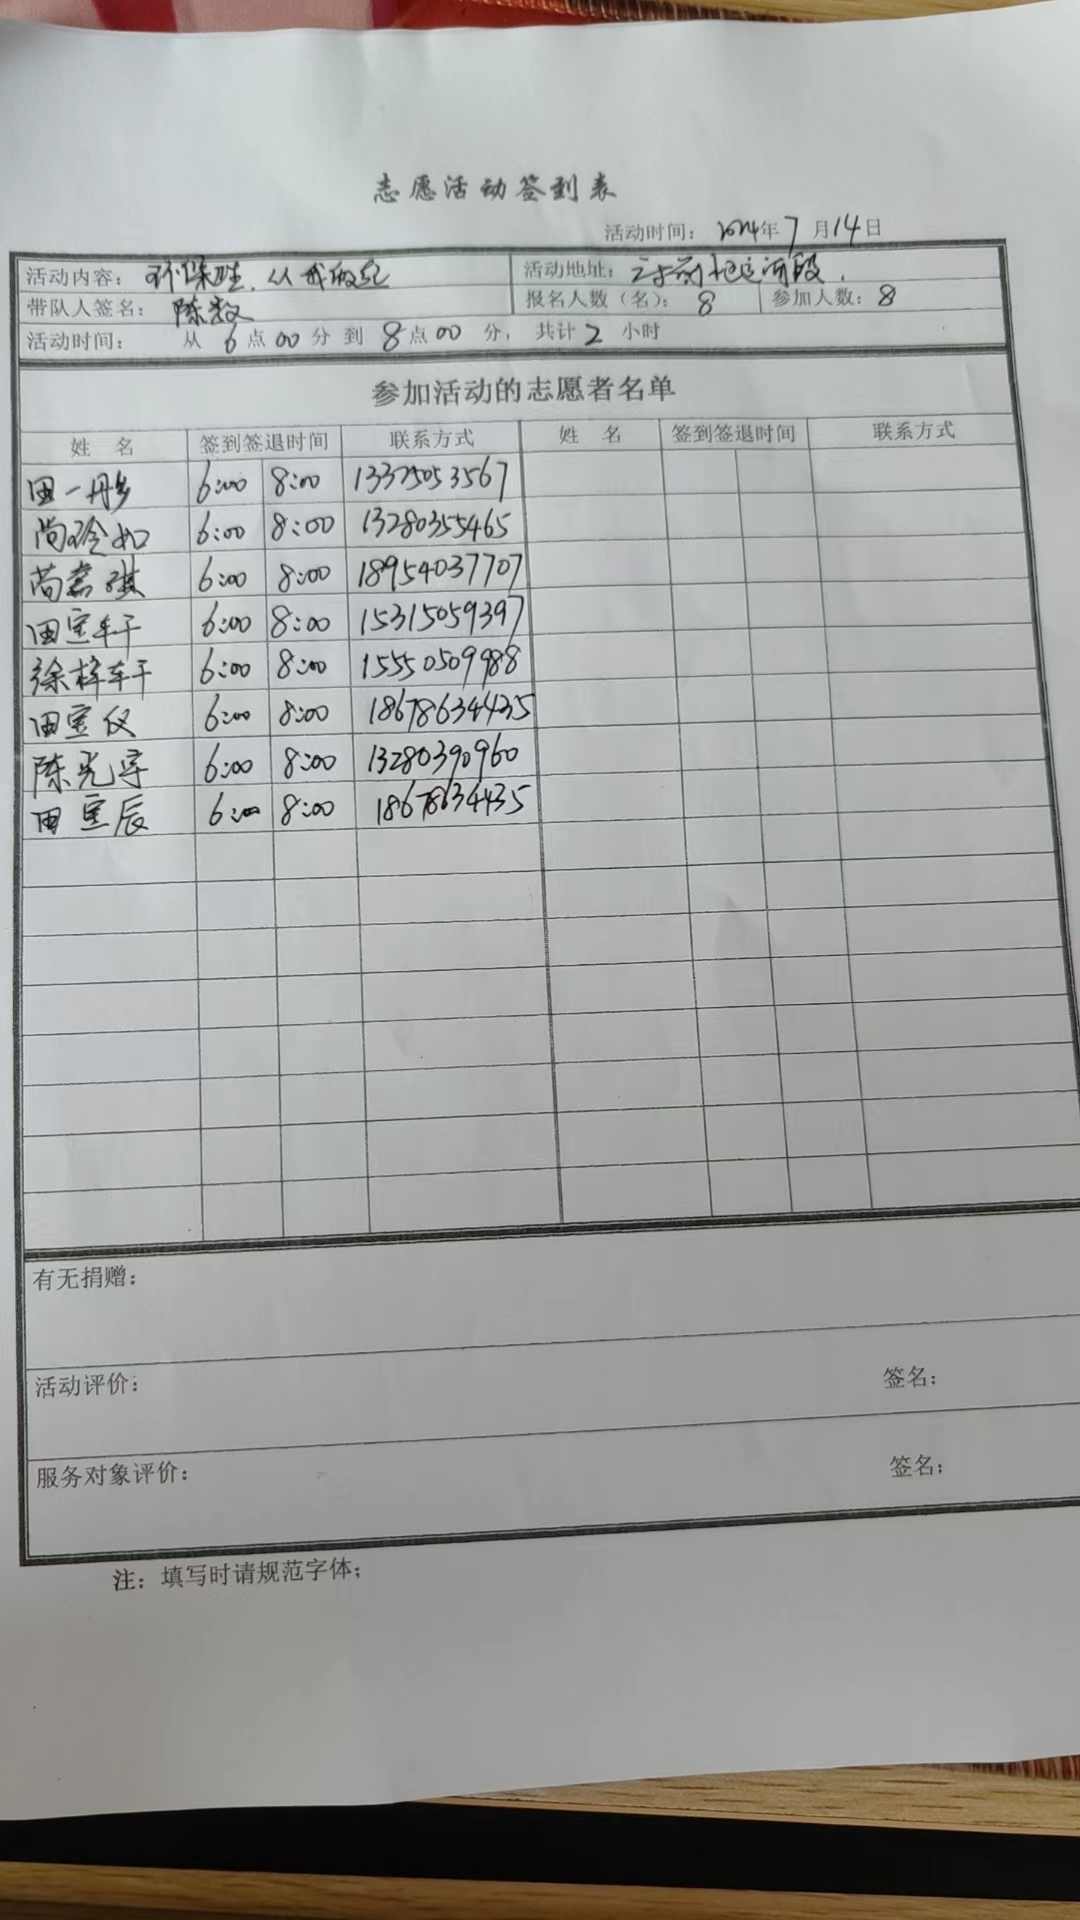 志愿活动签到表
活动时间： 2024年7月14日
活动内容： 环保卫生，从我做起 活动地址： 河段
带队人签名： 陈数 报名人数（名）： 8 参加人数： 8
活动时间： 从 6 点 00 分到 8 点 00 分，共计 2 小时
参加活动的志愿者名单
姓 名 签到签退时间 联系方式 姓 名 签到签退时间 联系方式
田一丹 6:00 8:00 13375053567
尚玲如 6:00 8:00 13280355465
尚嘉琪 6:00 8:00 18954037707
田宝轩 6:00 8:00 15315059397
徐梓轩 6:00 8:00 15550509988
田宝仪 6:00 8:00 18678634435
陈光宇 6:00 8:00 13280390960
田宝辰 6:00 8:00 18678634435
有无捐赠：
活动评价： 签名：
服务对象评价： 签名：
注：填写时请规范字体；